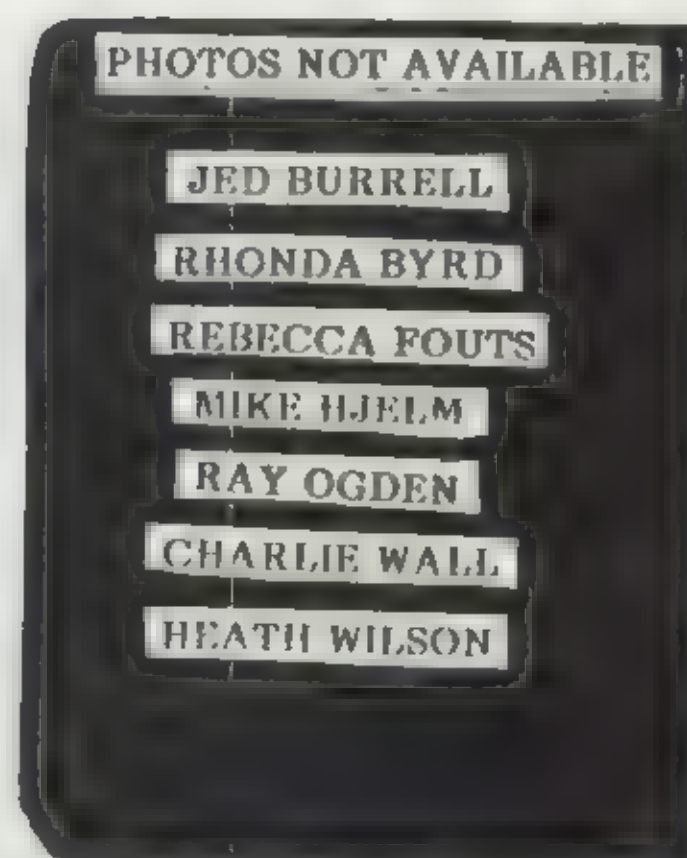 PHOTOS NOT AVAILABLE
JED BURRELL
RHONDA BYRD
REBECCA FOUTS
MIKE HJELM
RAY OGDEN
CHARLIE WALL
HEATH WILSON